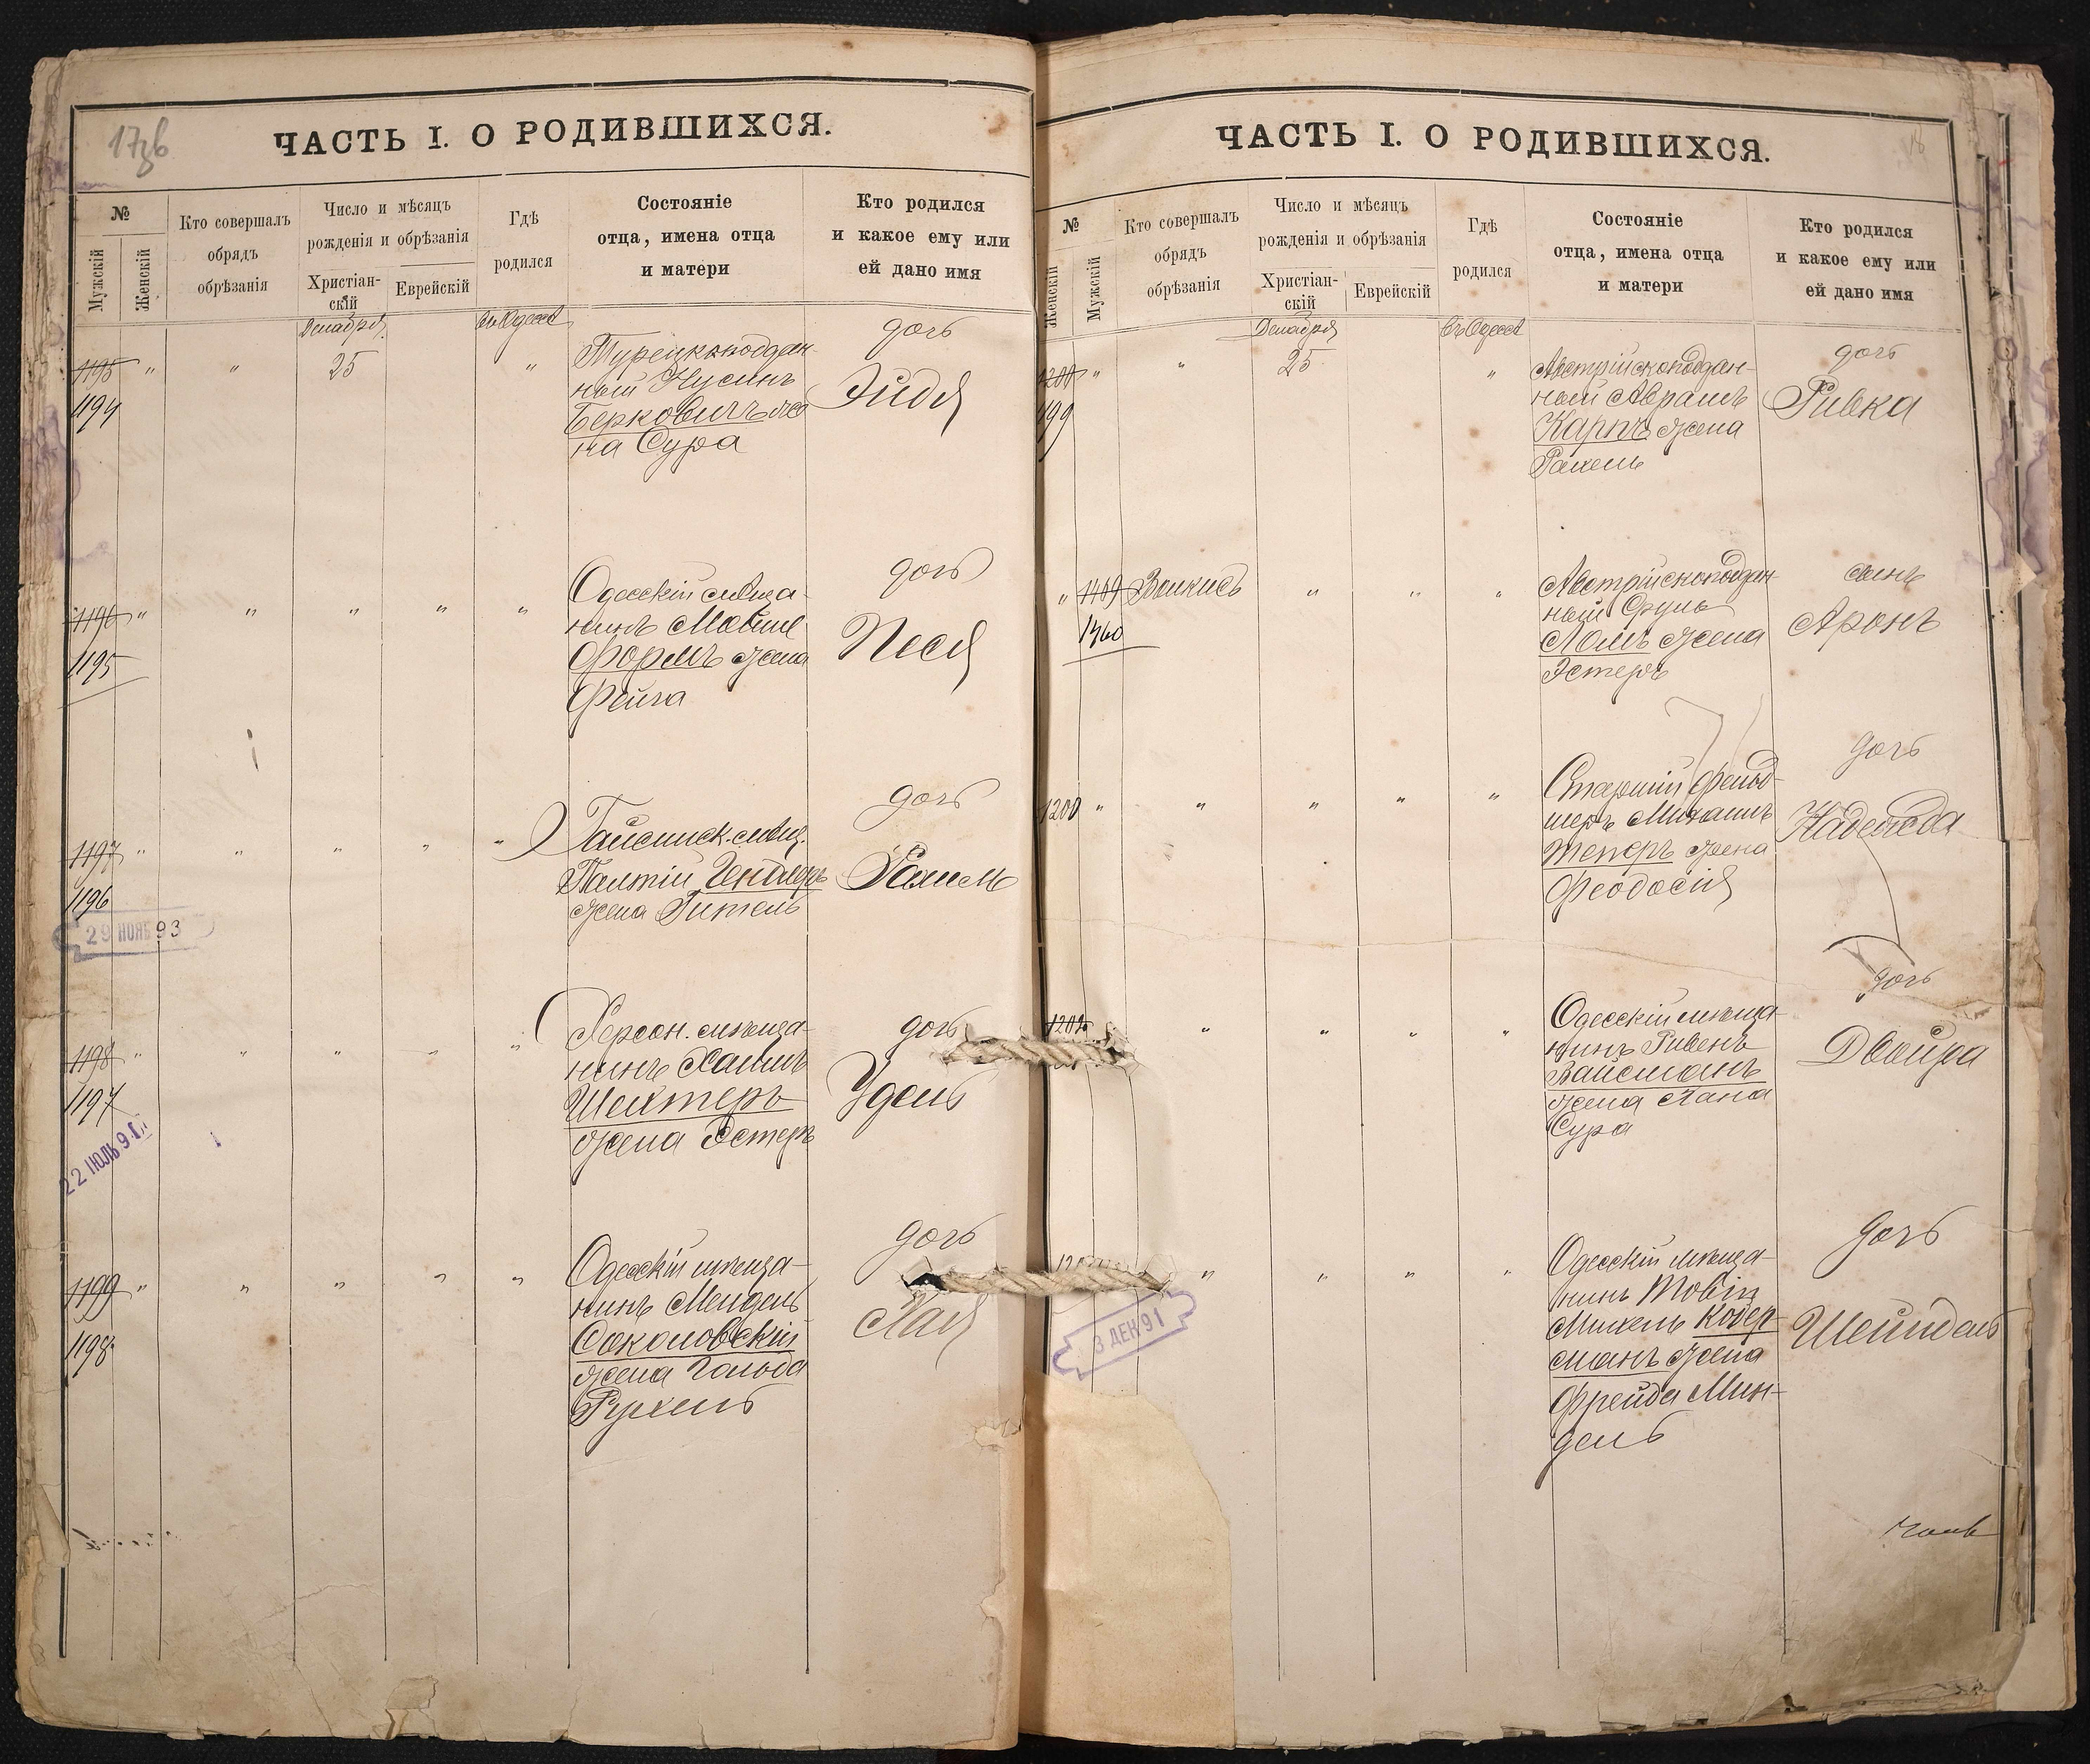 17зв
ЧАСТЬ I. О РОДИВШИХСЯ.
№
Мужскій
Женскій
Кто совершалъ
обрядъ
обрѣзанія
Число и мѣсяцъ
рожденія и обрѣзанія
Христіан-
скій
Еврейскій
Гдѣ
родился
Состояніе
отца, имена отца
и матери
Кто родился
и какое ему или
ей дано имя
Декабря
въ Одессѣ
1195 " " 25 "
1194
Турецкоподдан-
ный Нусинъ
Берковичъ же-
на Сура
дочь
Эйдя
1196 " " " " "
1195
Одесскій мѣща-
нинъ Мовше
Формъ жена
Фейга
дочь
Песя
1197 " " " " "
1196
29 НОЯБ 93
Гайсинск. мѣщ.
Палтій
жена Гитель
дочь
Рахиль
1198 " " " " "
1197
22 ИЮЛЬ 9
Херсон. мѣща-
нинъ Хаимъ
Шехтеръ
жена Эстеръ
дочь
Удель
1199 " " " " "
1198
Одесскій мѣща-
нинъ Мендель
Соколовскій
жена Гольда
Рухель
дочь
Хая
18
ЧАСТЬ I. О РОДИВШИХСЯ.
№
Женскій
Мужскій
Кто совершалъ
обрядъ
обрѣзанія
Число и мѣсяцъ
рожденія и обрѣзанія
Христіан-
скій
Еврейскій
Гдѣ
родился
Состояніе
отца, имена отца
и матери
Кто родился
и какое ему или
ей дано имя
Декабря
въ Одессѣ
1200 " " 25 "
1199
Австрійскоподдан-
ный Аврамъ
Карпъ жена
Рахель
дочь
Ривка
" 1459 " " "
1460
Австрійскоподдан-
ный Сруль
жена
Эстеръ
сынъ
Аронъ
1200 " " " " "
Старшій фельд-
шеръ Михаилъ
Тепоръ жена
Феодосія
дочь
Надежда
1202 " " " "
Одесскій мѣща-
нинъ Рувенъ
Вайсманъ
жена Хана
Сура
дочь
Двойра
120 " " " "
3 ДЕК 91
Одесскій мѣща-
нинъ Товія
Михель Кобер-
манъ жена
Фрейда Мин-
дель
дочь
Шейндель